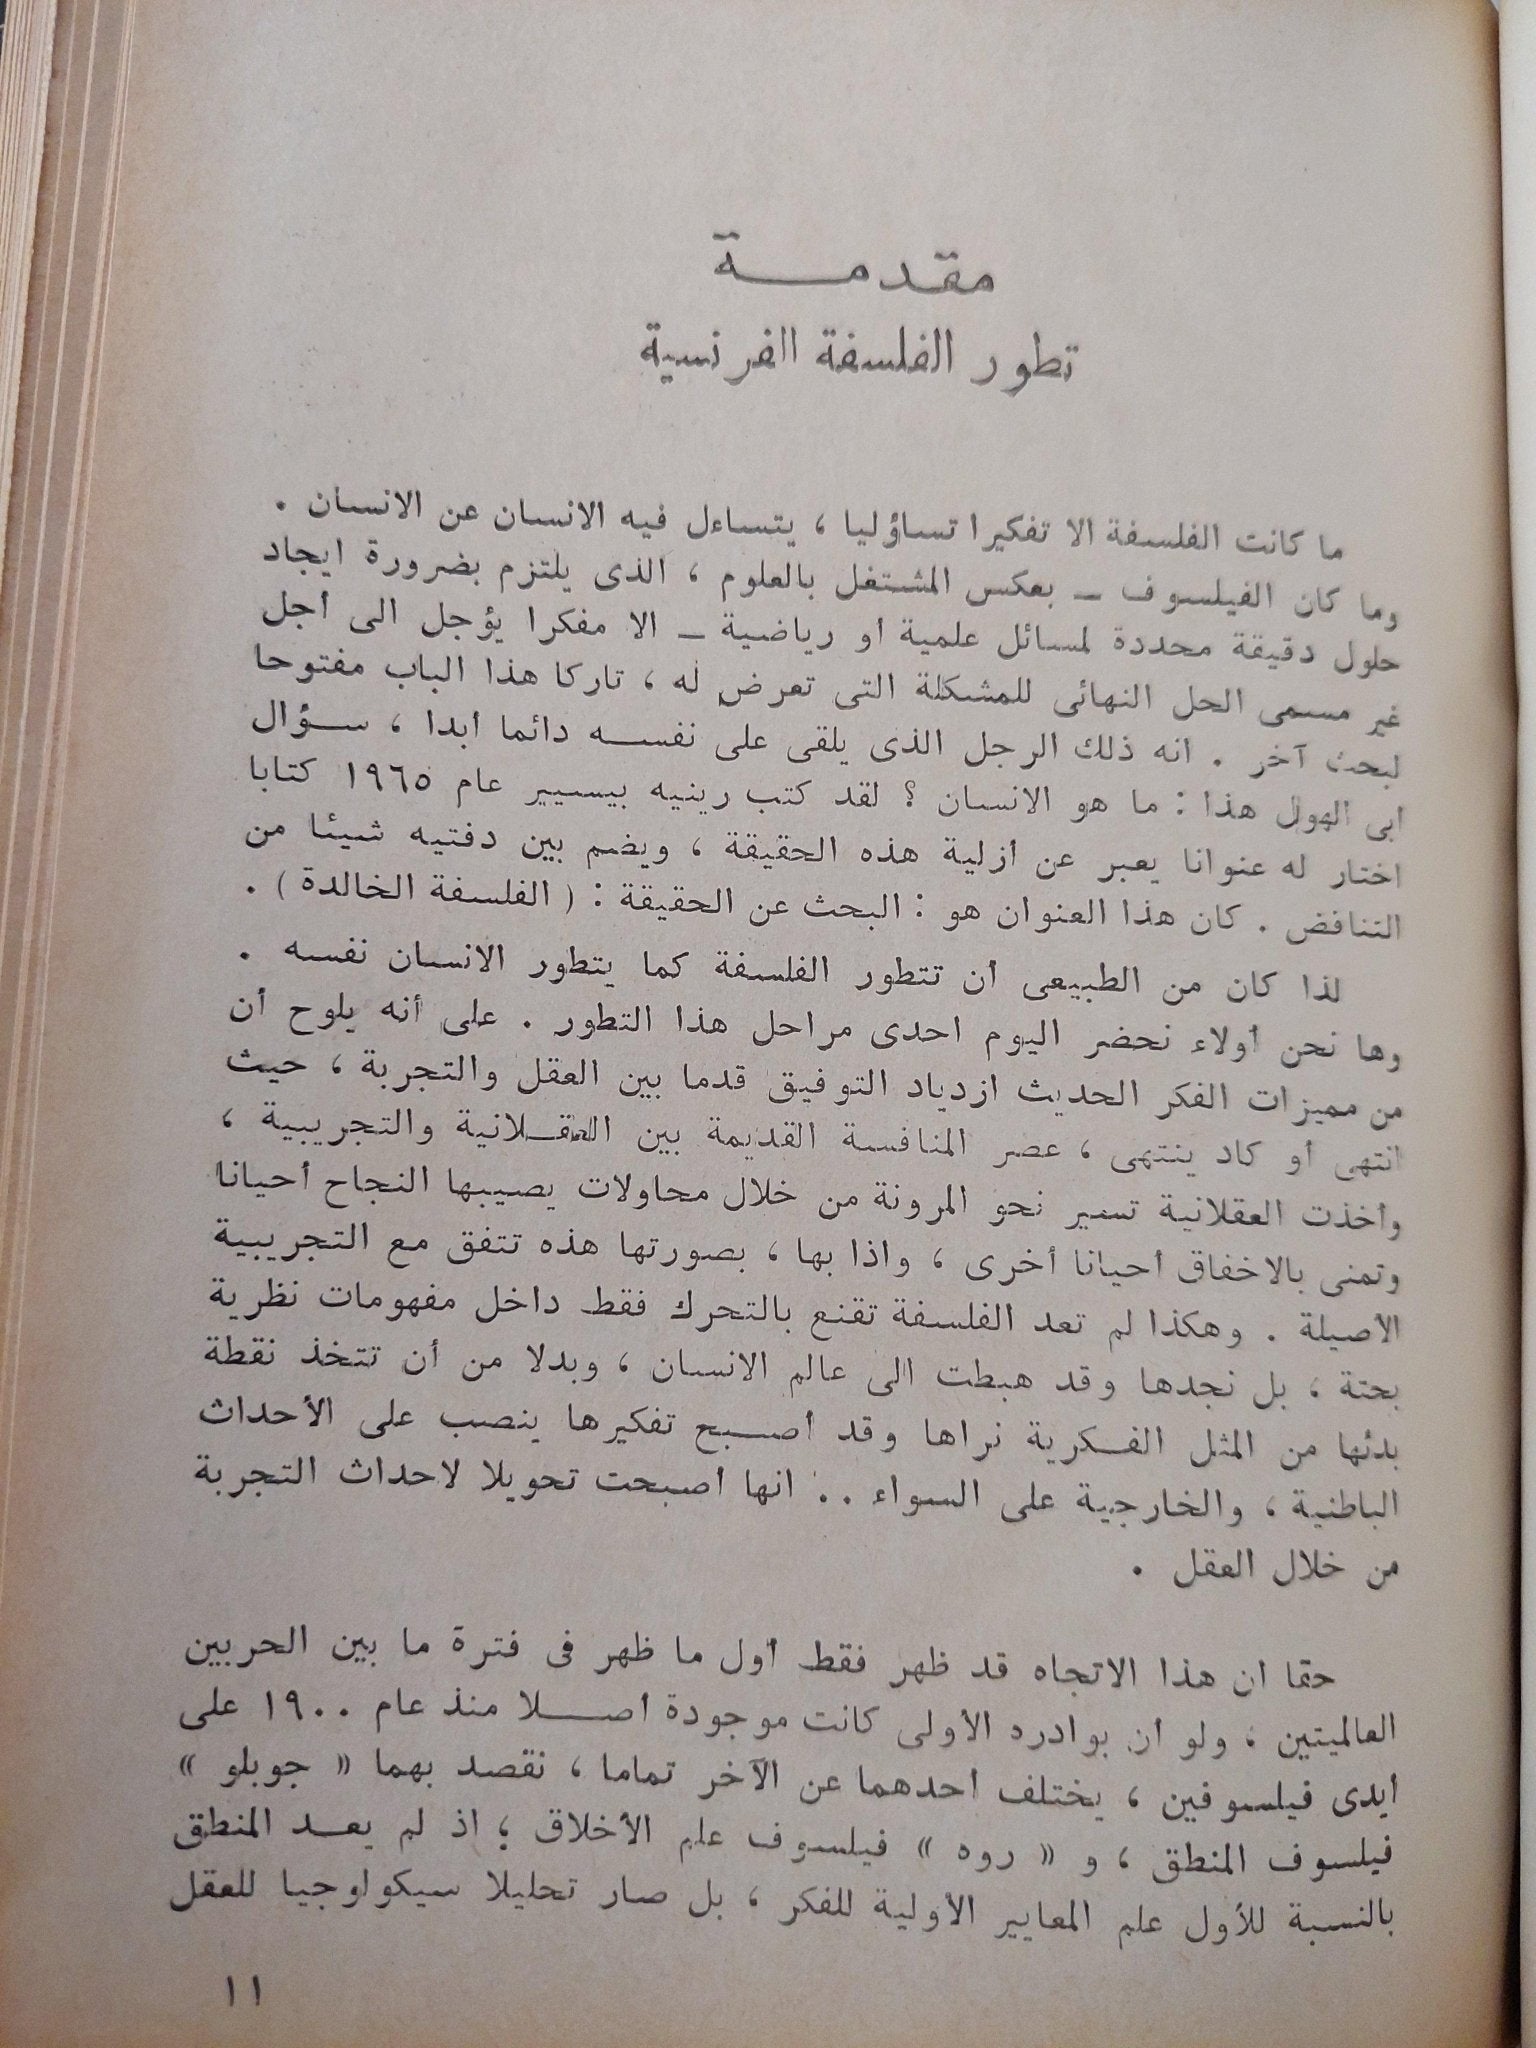 مقدمة
تطور الفلسفة الفرنسية
ما كانت الفلسفة الا تفكيرا تساؤليا ، يتساءل فيه الانسان عن الانسان .
وما كان الفيلسوف – بعكس المشتغل بالعلوم ، الذى يلتزم بضرورة ايجاد
حلول دقيقة محددة لمسائل علمية او رياضية – الا مفكرا يؤجل الى أجل
غير مسمى الحل النهائى للمشكلة التى تعرض له ، تاركا هذا الباب مفتوحا
لبحث آخر . انه ذلك الرجل الذى يلقى على نفسه دائما أبدا ، سؤال
ابى الهول هذا : ما هو الانسان ؟ لقد كتب رينيه بيسيير عام ١٩٦٥ كتابا
اختار له عنوانا يعبر عن أزلية هذه الحقيقة ، ويضم بين دفتيه شيئا من
التناقض . كان هذا العنوان هو : البحث عن الحقيقة : ( الفلسفة الخالدة ) .
لذا كان من الطبيعى أن تتطور الفلسفة كما يتطور الانسان نفسه .
وها نحن أولاء نحضر اليوم احدى مراحل هذا التطور . على أنه يلوح أن
من مميزات الفكر الحديث ازدياد التوفيق قدما بين العقل والتجربة ، حيث
انتهى أو كاد ينتهى ، عصر المنافسة القديمة بين العقلانية والتجريبية ،
وأخذت العقلانية تسير نحو المرونة من خلال محاولات يصيبها النجاح أحيانا
وتمنى بالاخفاق أحيانا أخرى ، واذا بها ، بصورتها هذه تتفق مع التجريبية
الأصيلة . وهكذا لم تعد الفلسفة تقنع بالتحرك فقط داخل مفهومات نظرية
بحتة ، بل نجدها وقد هبطت الى عالم الانسان ، وبدلا من أن تتخذ نقطة
بدئها من المثل الفكرية نراها وقد أصبح تفكيرها ينصب على الأحداث
الباطنية ، والخارجية على السواء .. انها أصبحت تحويلا لاحداث التجربة
من خلال العقل .
حقا ان هذا الاتجاه قد ظهر فقط أول ما ظهر فى فترة ما بين الحربين
العالميتين ، ولو أن بوادره الأولى كانت موجودة أصلا منذ عام ١٩٠٠ على
أيدى فيلسوفين ، يختلف أحدهما عن الآخر تماما ، نقصد بهما « جوبلو »
فيلسوف المنطق ، و « روه » فيلسوف علم الأخلاق ؛ اذ لم يعد المنطق
بالنسبة للأول علم المعايير الأولية للفكر ، بل صار تحليلا سيكولوجيا للعقل
١١